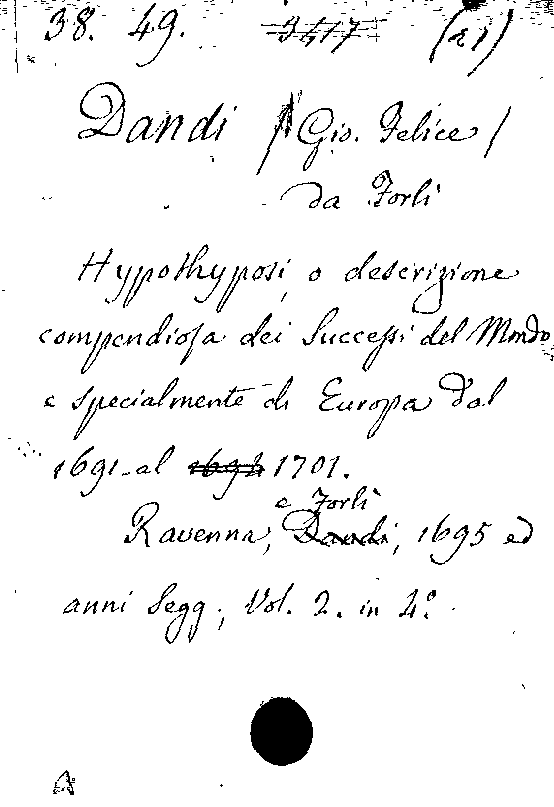 38. 49. 3417 (21)
Dandi / Gio. Felice /
da Forlì
Hypothyposi, o descrizione
compendiosa dei Successi del Mondo
e specialmente di Europa dal
1691 al 1694 1701.
e Forlì
Ravenna, Dandi, 1695 ed
anni segg., Vol. 2. in 4.°
A